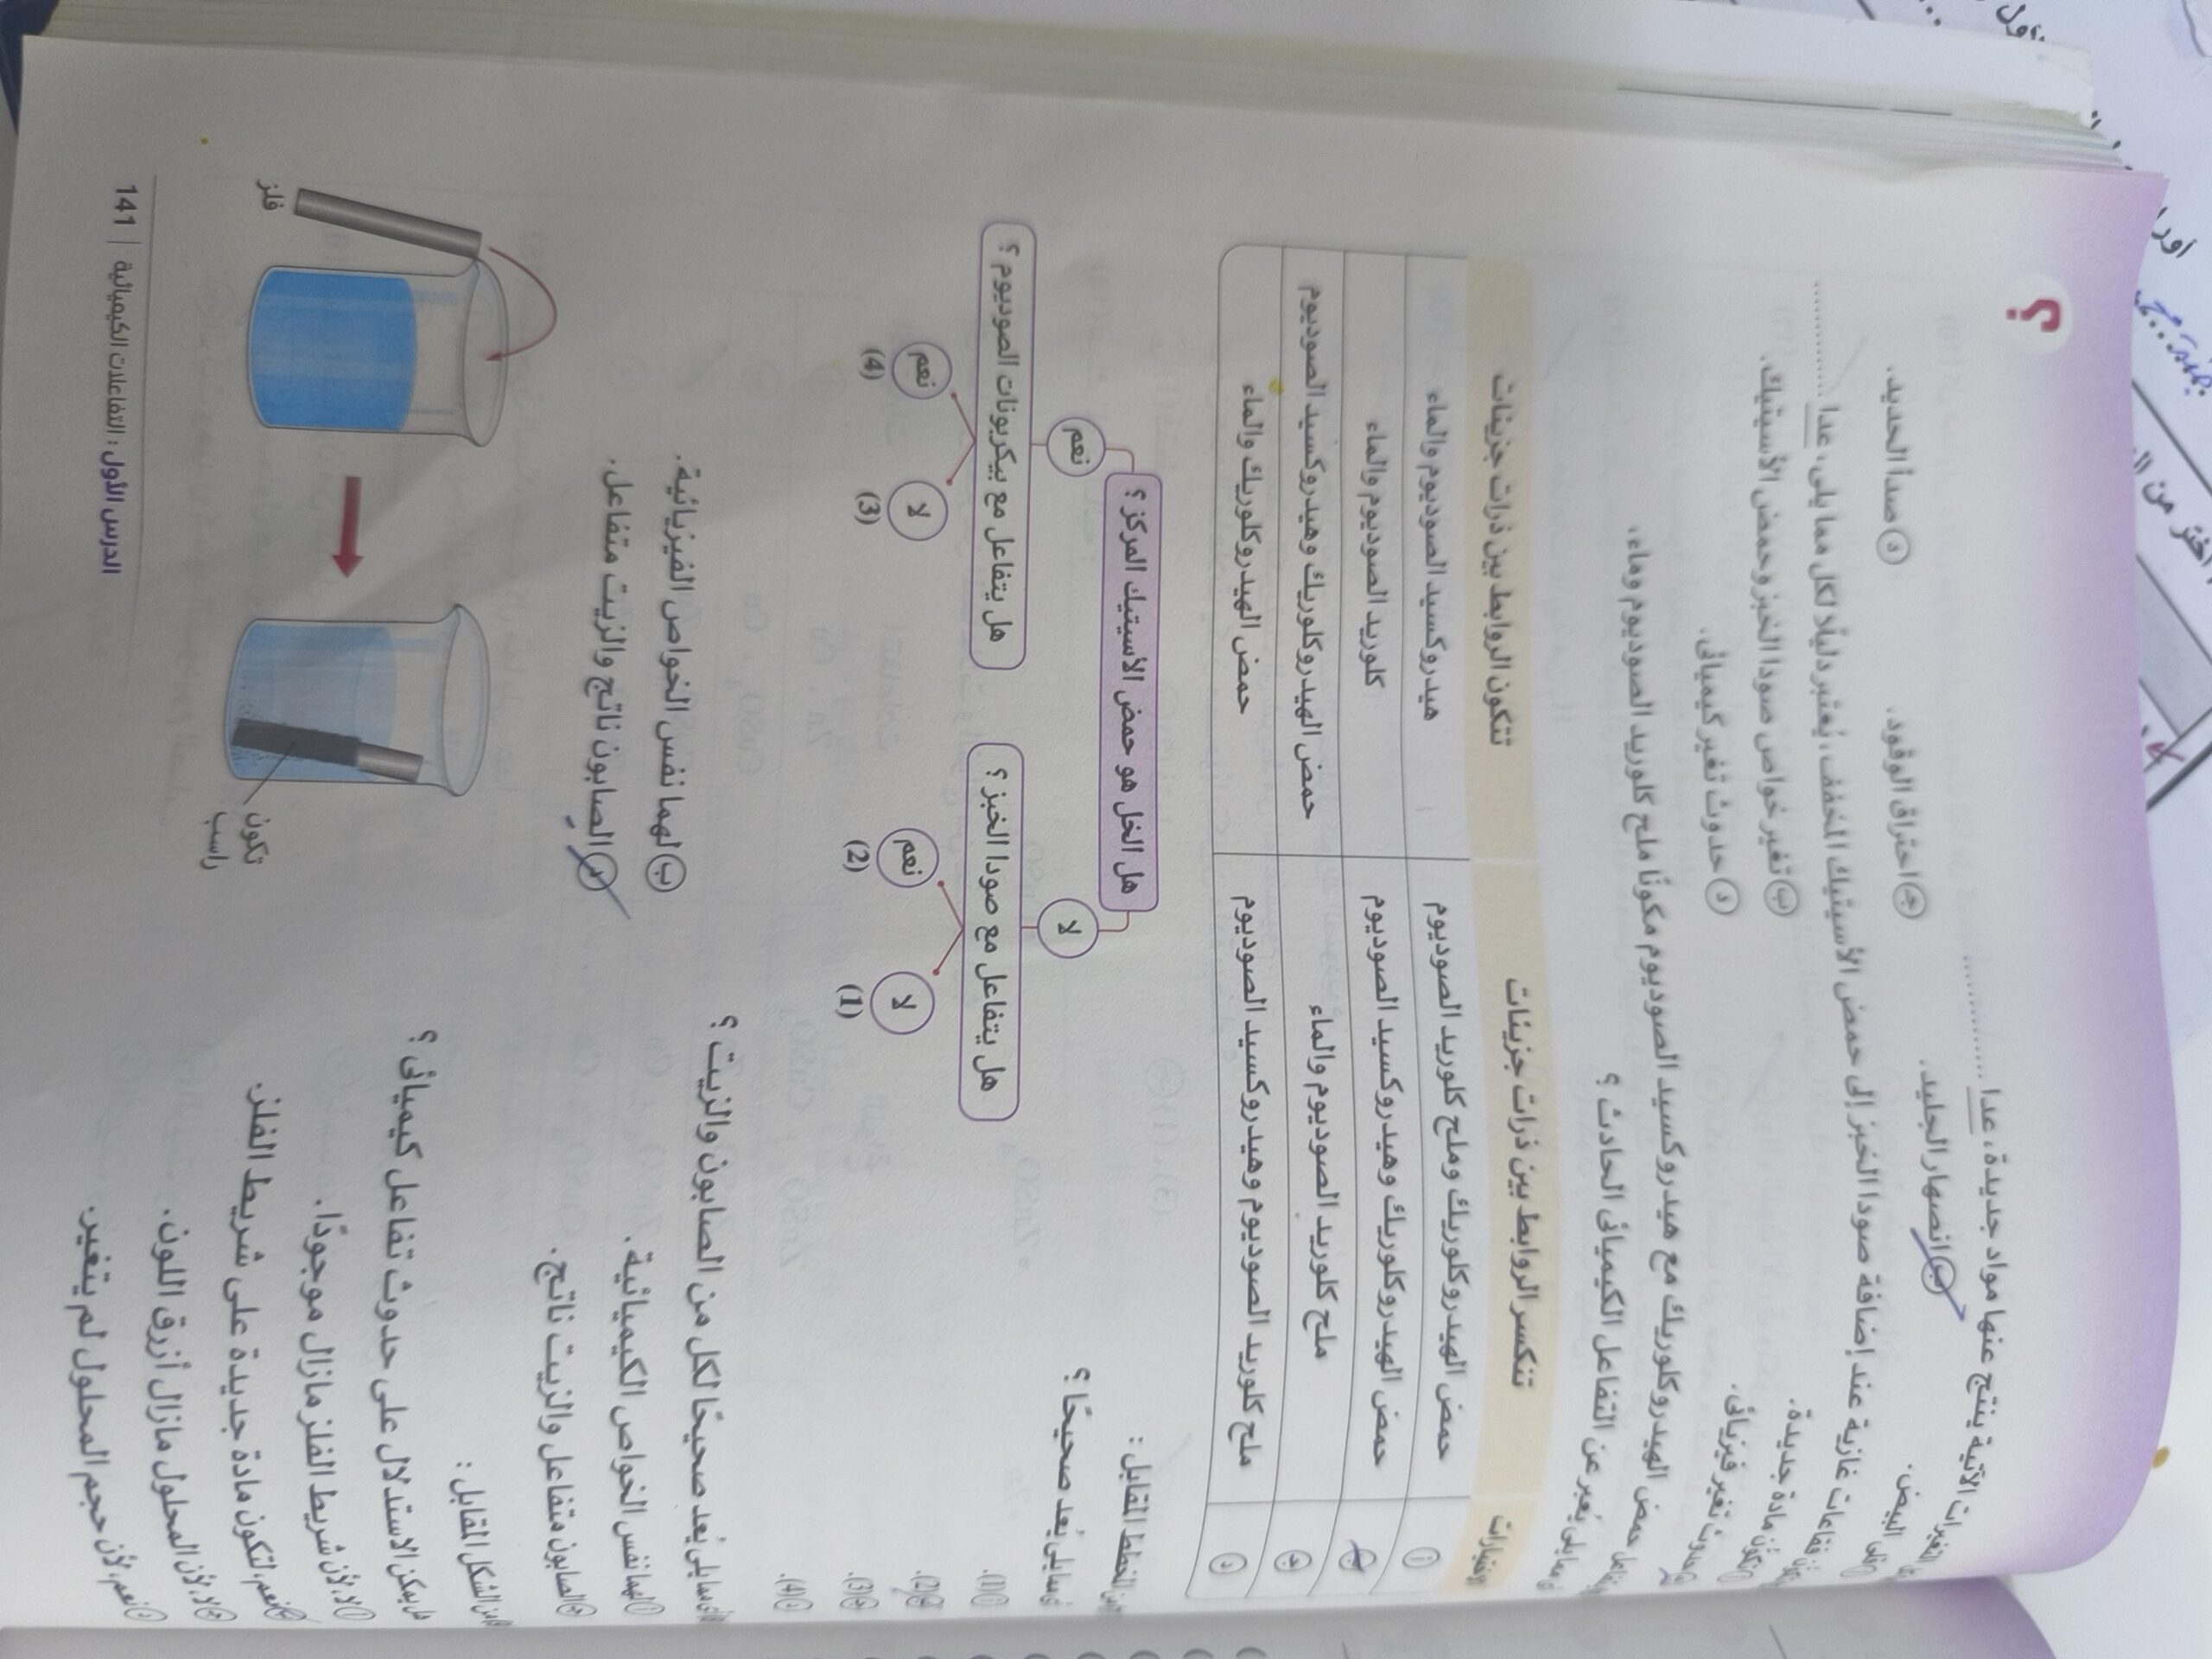 ؟
التغيرات الآتية ينتج عنها مواد جديدة، عدا ............
البيض.
ب انصهار الجليد.
ج احتراق الوقود.
د صدأ الحديد.
فقاعات غازية عند إضافة صودا الخبز إلى حمض الأسيتيك المخفف، يُعتبر دليلًا لكل مما يلى، عدا ............
تكوُّن مادة جديدة.
ب تغير خواص صودا الخبز وحمض الأسيتيك.
حدوث تغير فيزيائى.
د حدوث تغير كيميائى.
حمض الهيدروكلوريك مع هيدروكسيد الصوديوم مكونًا ملح كلوريد الصوديوم وماء،
يُعبر عن التفاعل الكيميائى الحادث ؟
الاختيارات تنكسر الروابط بين ذرات جزيئات تتكون الروابط بين ذرات جزيئات
أ حمض الهيدروكلوريك وملح كلوريد الصوديوم هيدروكسيد الصوديوم والماء
ب حمض الهيدروكلوريك وهيدروكسيد الصوديوم كلوريد الصوديوم والماء
ج ملح كلوريد الصوديوم والماء حمض الهيدروكلوريك وهيدروكسيد الصوديوم
د ملح كلوريد الصوديوم وهيدروكسيد الصوديوم حمض الهيدروكلوريك والماء
المخطط المقابل :
يُعد صحيحًا ؟
أ (1).
ب (2).
ج (3).
د (4).
هل الخل هو حمض الأسيتيك المركز ؟
لا نعم
هل يتفاعل مع صودا الخبز ؟ هل يتفاعل مع بيكربونات الصوديوم ؟
لا نعم لا نعم
(1) (2) (3) (4)
يُعد صحيحًا لكل من الصابون والزيت ؟
أ لهما نفس الخواص الكيميائية.
ب لهما نفس الخواص الفيزيائية.
ج الصابون متفاعل والزيت ناتج.
د الصابون ناتج والزيت متفاعل.
من الشكل المقابل :
هل يمكن الاستدلال على حدوث تفاعل كيميائى ؟
أ لا، لأن شريط الفلز مازال موجودًا.
ب نعم، لتكون مادة جديدة على شريط الفلز.
ج لا، لأن المحلول مازال أزرق اللون.
د نعم، لأن حجم المحلول لم يتغير.
فلز
تكون
راسب
141 | الدرس الأول : التفاعلات الكيميائية